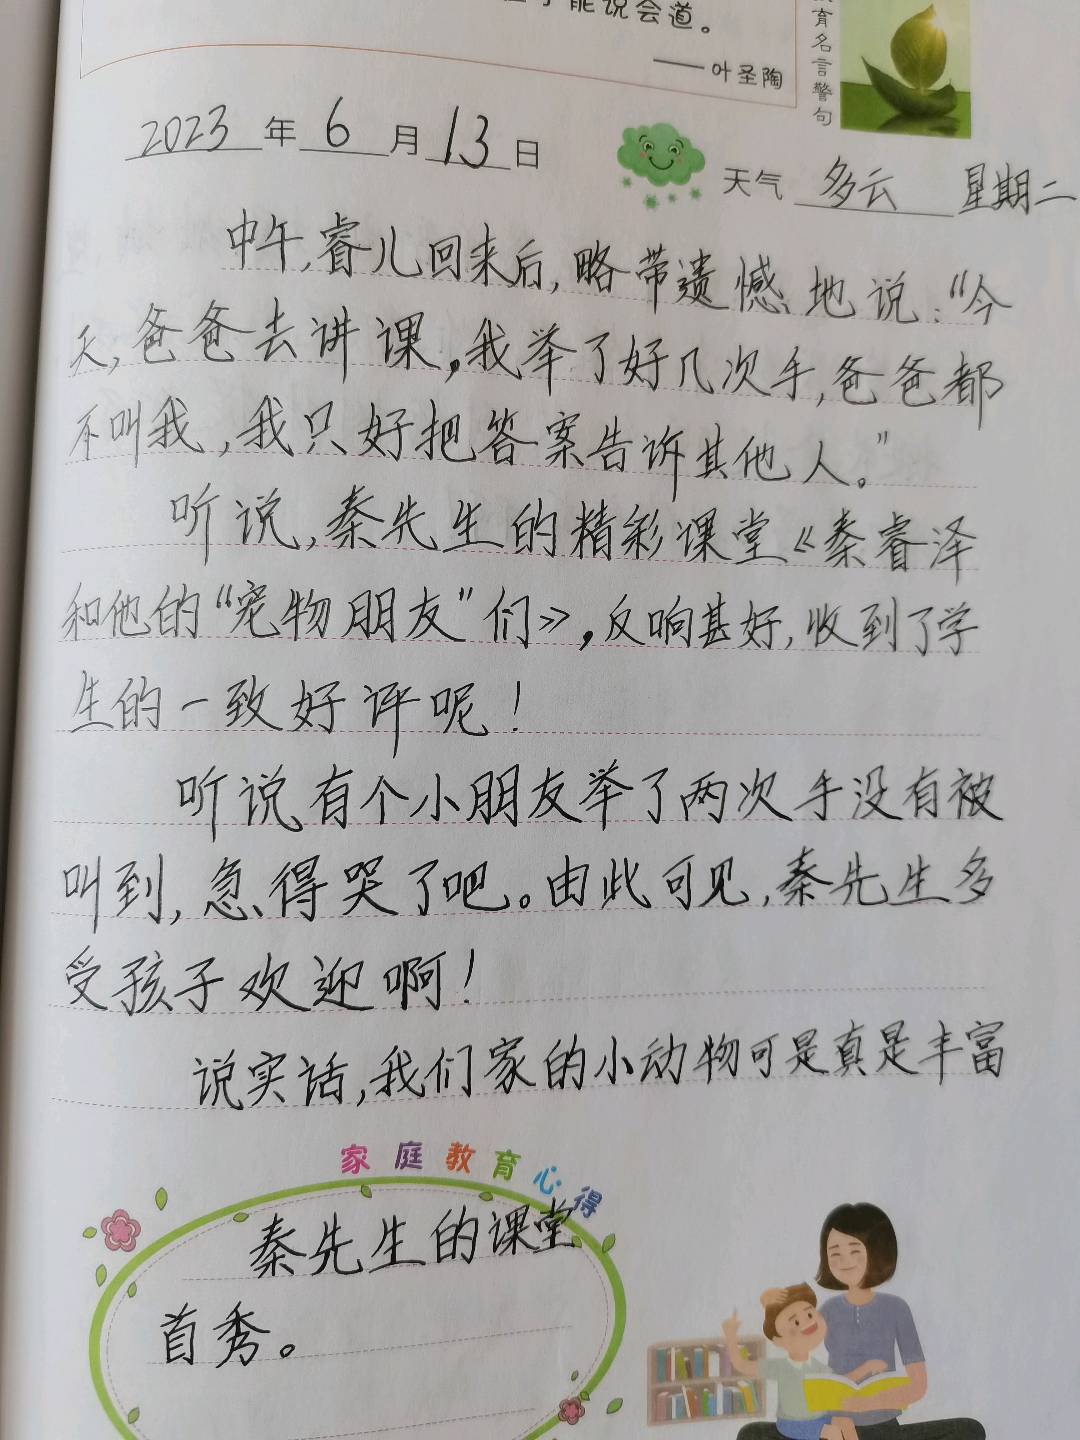 能说会道。
——叶圣陶
育名言警句
2023年6月13日
天气 多云 星期二
中午,睿儿回来后,略带遗憾地说:“今
天,爸爸去讲课,我举了好几次手,爸爸都
不叫我,我只好把答案告诉其他人。”
听说,秦先生的精彩课堂《秦睿泽
和他的“宠物朋友”们》,反响甚好,收到了学
生的一致好评呢!
听说有个小朋友举了两次手没有被
叫到,急得哭了吧。由此可见,秦先生多
受孩子欢迎啊!
说实话,我们家的小动物可是真是丰富
家庭教育心得
秦先生的课堂
首秀。